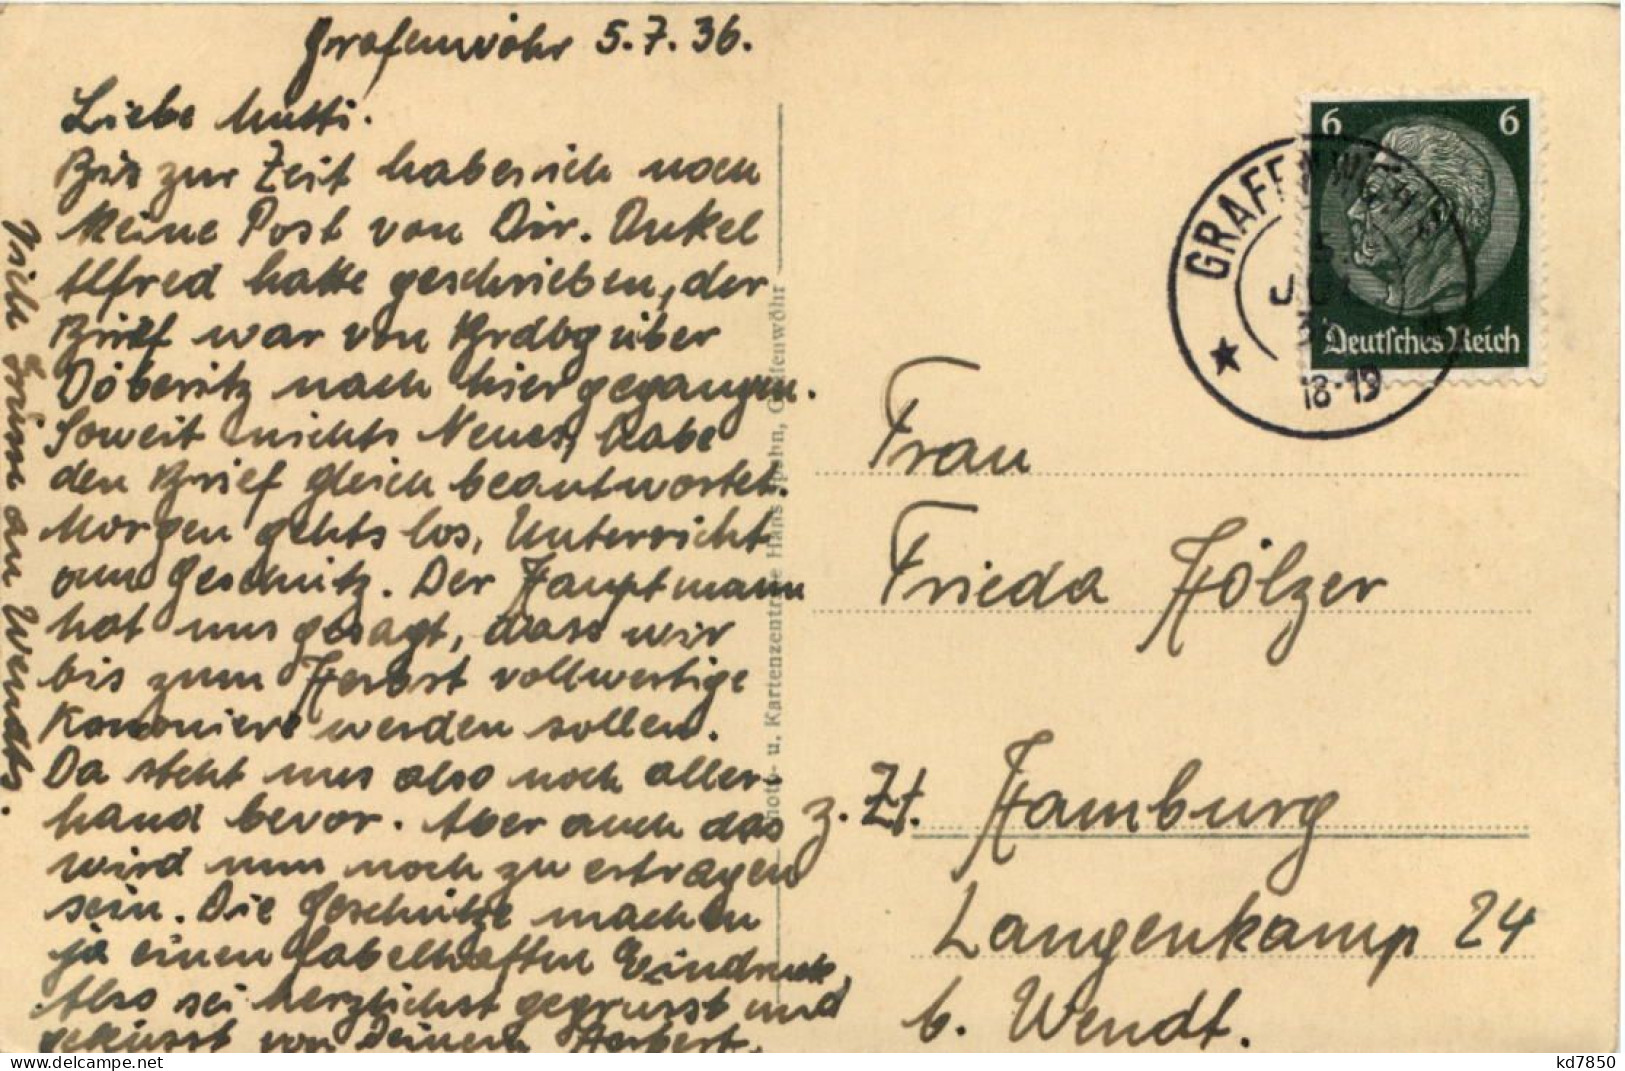 Grafenwöhr 5.7.36.
Liebe Mutti.
Bis zur Zeit habe ich noch
keine Post von Dir. Onkel
Alfred hatte geschrieben, der
Brief war von Brdbg über
Döberitz nach hier gegangen.
Soweit nichts Neues, habe
den Brief gleich beantwortet.
Morgen gehts los, Unterricht
am Geschütz. Der Hauptmann
hat uns gesagt, dass wir
bis zum Herbst vollwertige
Kanoniere werden sollen.
Da steht uns also noch aller-
hand bevor. Aber auch das
wird nun noch zu ertragen
sein. Die Geschütze machen
ja einen fabelhaften Eindruck.
Also sei herzlichst gegrüsst und
geküsst von Deinem Herbert.
Viele Grüsse an Wendts.
Photo- u. Kartenzentrale Hans Grafenwöhr
6 6
Deutsches Reich
GRAFENWÖHR
5
JUL
18-19
Frau
Frieda Hölzer
z. Zt. Hamburg
Langenkamp 24
b. Wendt.
delcampe.net
kd7850